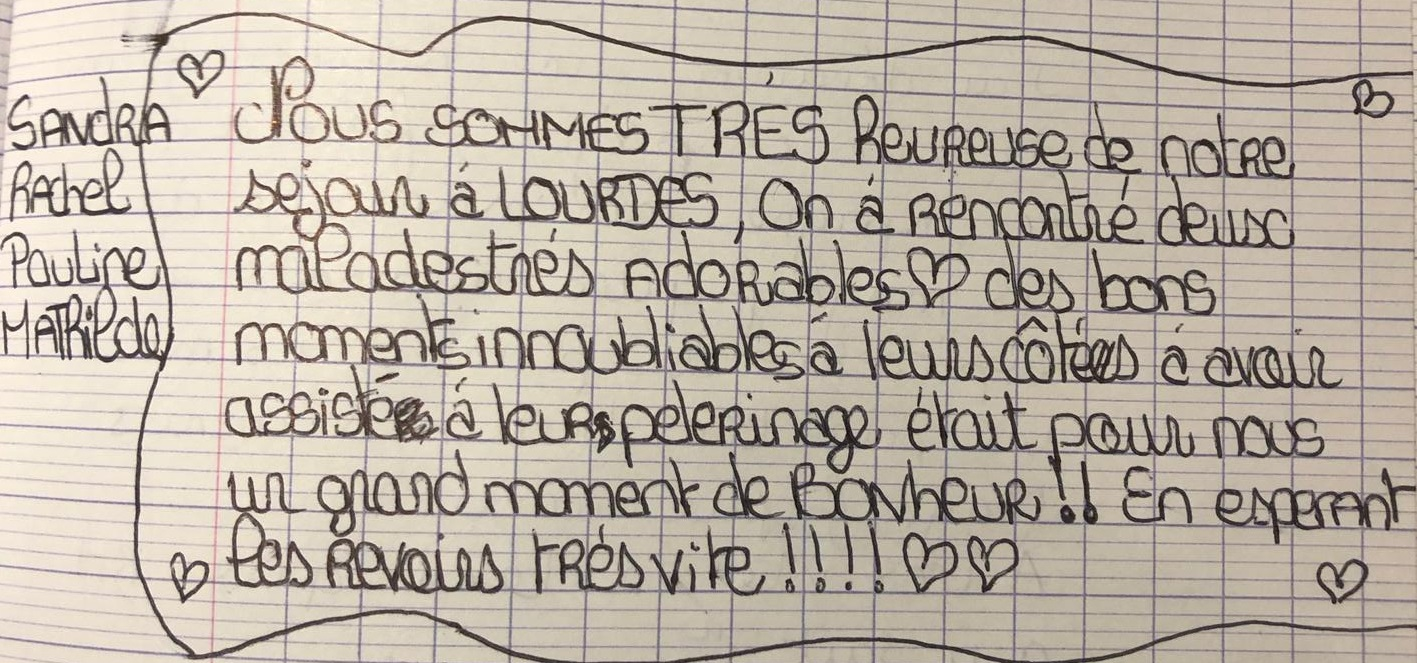 SANDRA
Rachel
Pauline
MATHilde
Nous SOMMES TRÉS Heureuse de notre
sejour à LOURDES, On à Rencontré deux
malades trés Adorables♡ des bons
moments innoubliables à leurs côtées à avoir
assistés à leurs pelerinage était pour nous
un grand moment de Bonheur!! En esperant
les Revoirs trés vite!!!!♡♡